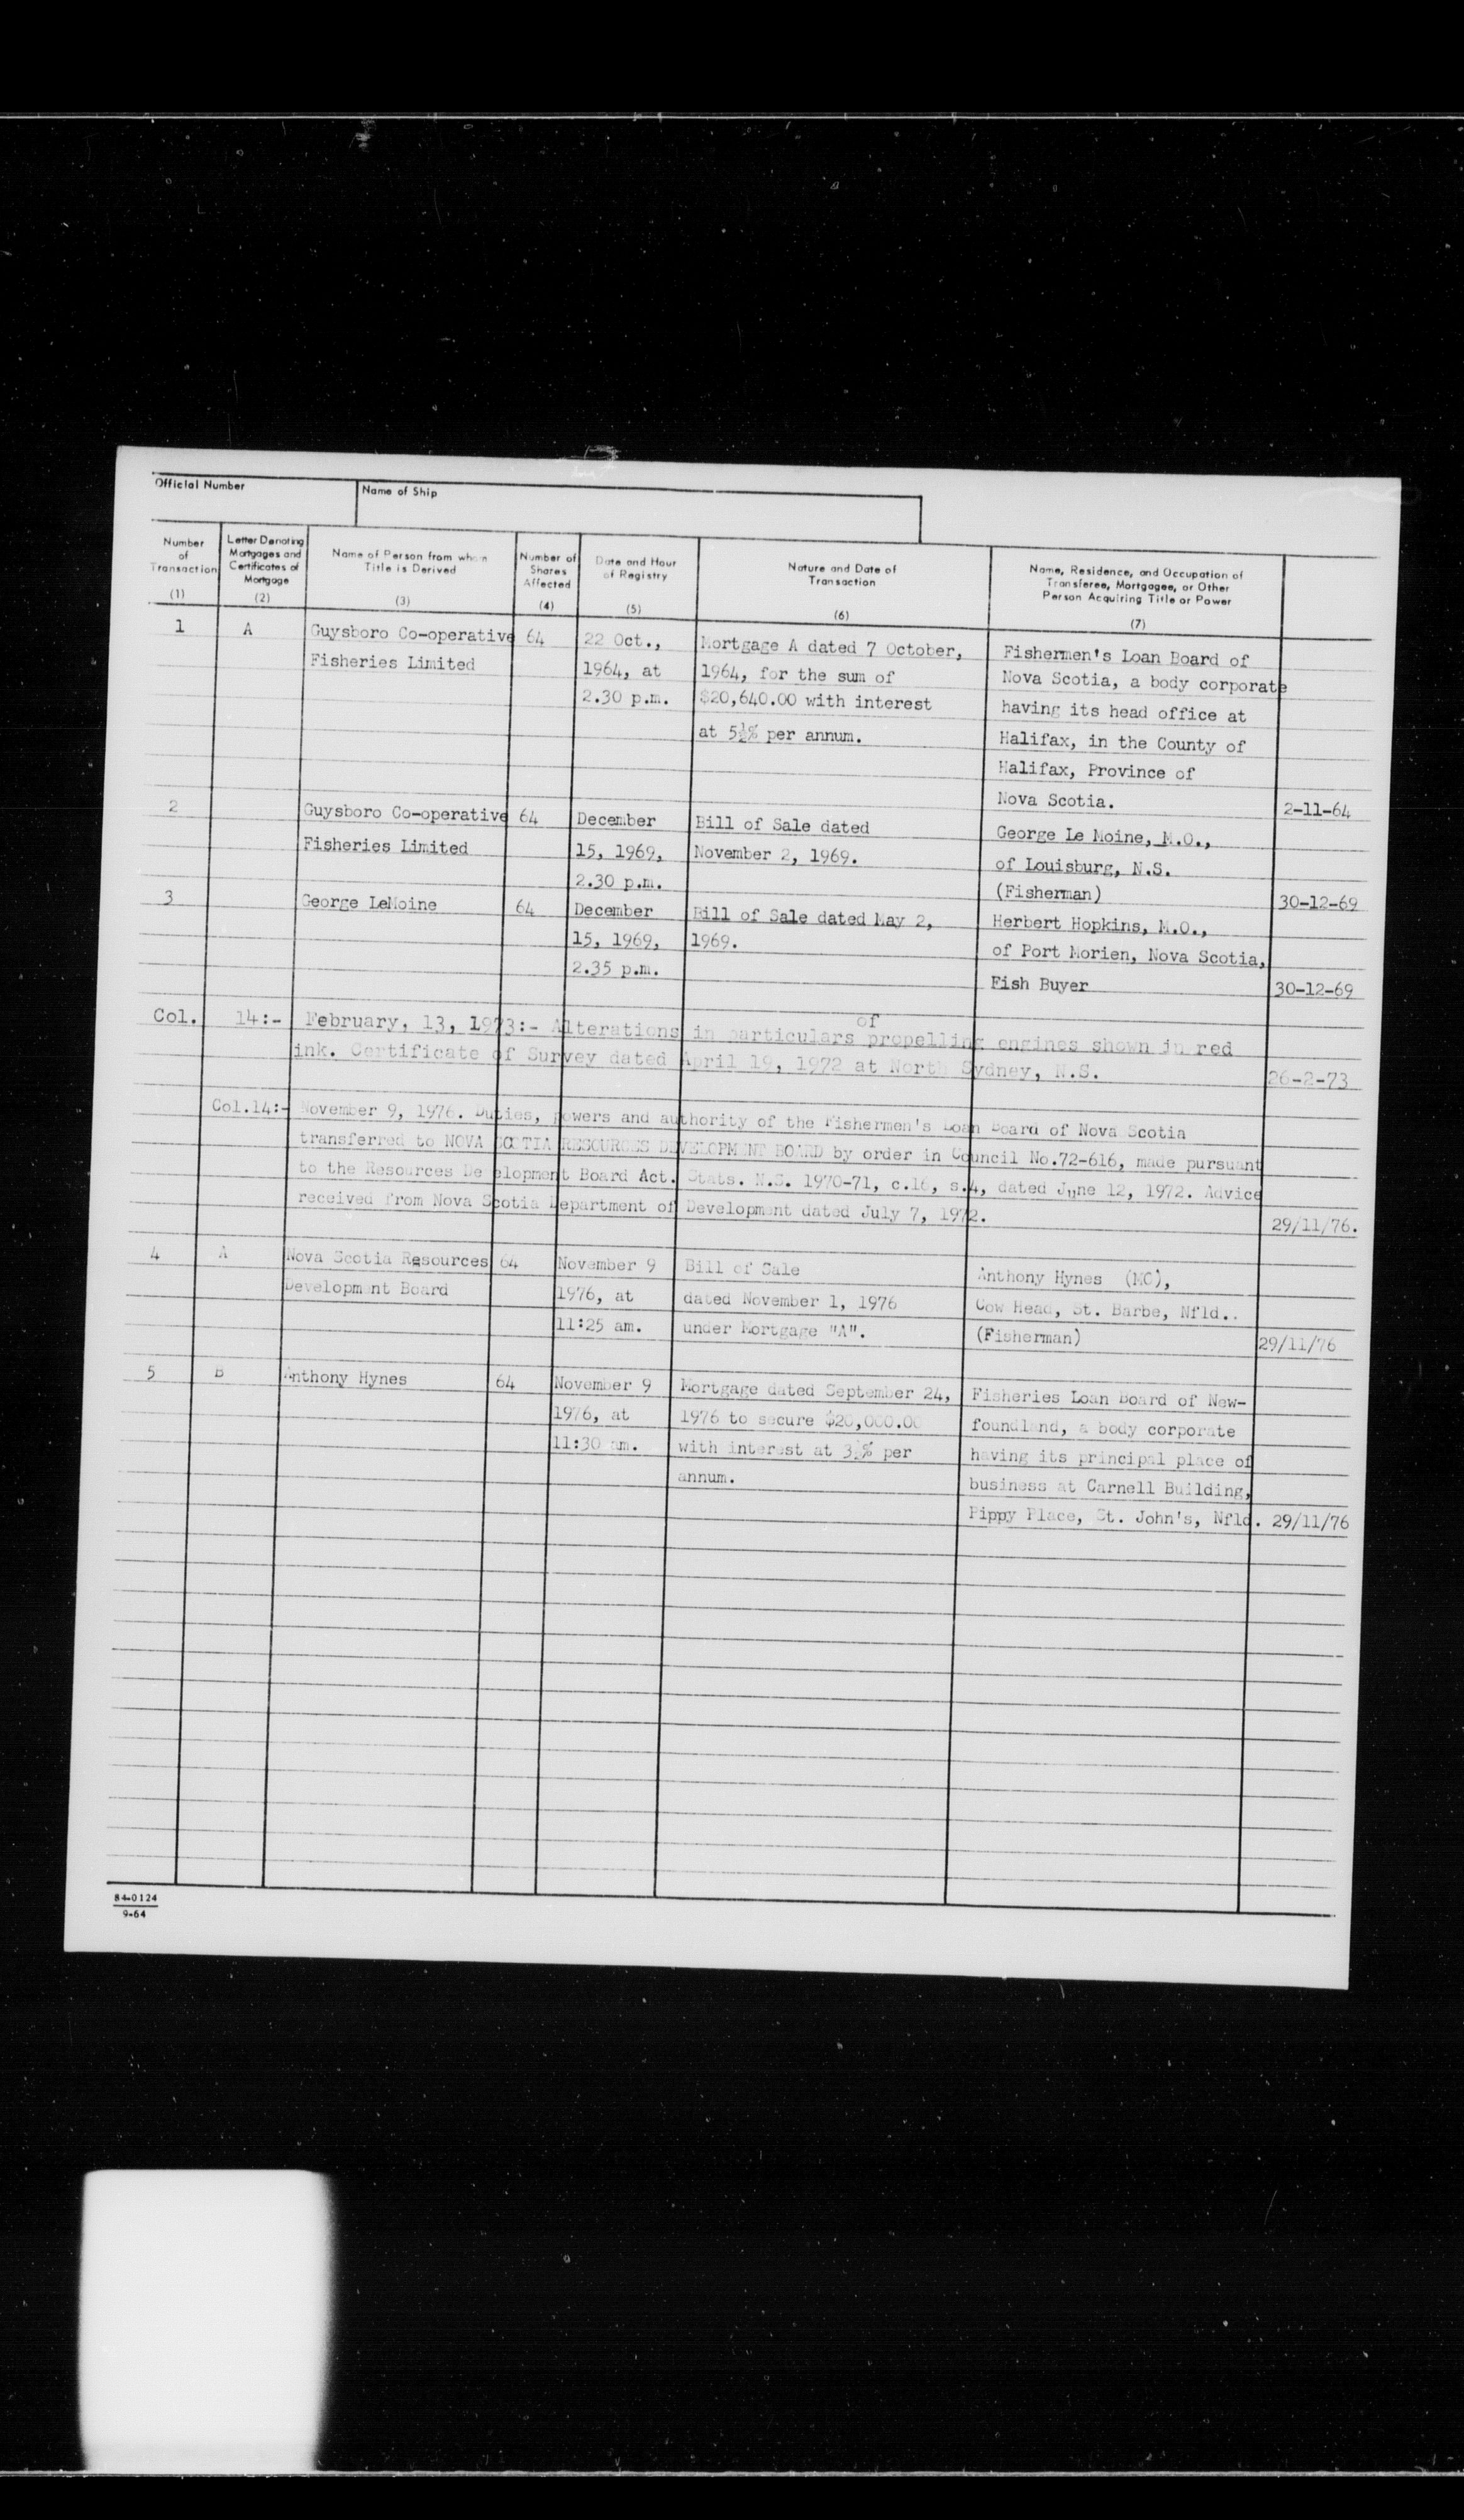 Official Number
Name of Ship
Number of Transaction (1)
Letter Denoting Mortgages and Certificates of Mortgage (2)
Name of Person from whom Title is Derived (3)
Number of Shares Affected (4)
Date and Hour of Registry (5)
Nature and Date of Transaction (6)
Name, Residence, and Occupation of Transferee, Mortgagee, or Other Person Acquiring Title or Power (7)
1 A Guysboro Co-operative 64 22 Oct., Mortgage A dated 7 October, Fishermen's Loan Board of
Fisheries Limited 1964, at 1964, for the sum of Nova Scotia, a body corporate
2.30 p.m. $20,640.00 with interest having its head office at
at 5½% per annum. Halifax, in the County of
Halifax, Province of
Nova Scotia. 2-11-64
2 Guysboro Co-operative 64 December Bill of Sale dated George Le Moine, M.O.,
Fisheries Limited 15, 1969, November 2, 1969. of Louisburg, N.S.
2.30 p.m. (Fisherman) 30-12-69
3 George LeMoine 64 December Bill of Sale dated May 2, Herbert Hopkins, M.O.,
15, 1969, 1969. of Port Morien, Nova Scotia,
2.35 p.m. Fish Buyer 30-12-69
Col. 14:- February, 13, 1973:- Alterations in particulars of propelling engines shown in red
ink. Certificate of Survey dated April 19, 1972 at North Sydney, N.S. 26-2-73
Col.14:- November 9, 1976. Duties, powers and authority of the Fishermen's Loan Board of Nova Scotia
transferred to NOVA SCOTIA RESOURCES DEVELOPMENT BOARD by order in Council No.72-616, made pursuant
to the Resources De elopment Board Act. Stats. N.S. 1970-71, c.16, s.4, dated June 12, 1972. Advice
received from Nova Scotia Department of Development dated July 7, 1972. 29/11/76.
4 A Nova Scotia Resources 64 November 9 Bill of Sale Anthony Hynes (MO),
Development Board 1976, at dated November 1, 1976 Cow Head, St. Barbe, Nfld..
11:25 am. under Mortgage "A". (Fisherman) 29/11/76
5 B Anthony Hynes 64 November 9 Mortgage dated September 24, Fisheries Loan Board of New-
1976, at 1976 to secure $20,000.00 foundland, a body corporate
11:30 am. with interest at 3½% per having its principal place of
annum. business at Carnell Building,
Pippy Place, St. John's, Nfld. 29/11/76
84-0124
9-64